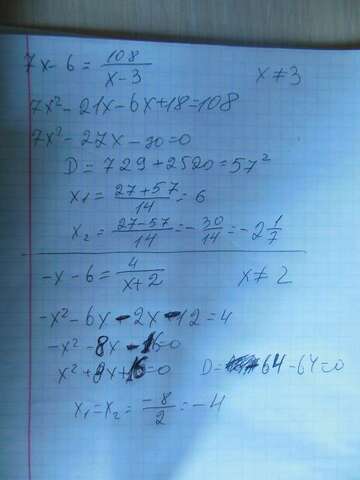 7x - 6 = 108/(x - 3)    x ≠ 3
7x² - 21x - 6x + 18 = 108
7x² - 27x - 90 = 0
D = 729 + 2520 = 57²
x₁ = (27 + 57)/14 = 6
x₂ = (27 - 57)/14 = -30/14 = -2 1/7
-x - 6 = 4/(x + 2)    x ≠ 2
-x² - 6x - 2x - 12 = 4
-x² - 8x - 16 = 0
x² + 8x + 16 = 0    D = 64 - 64 = 0
x₁ = x₂ = -8/2 = -4